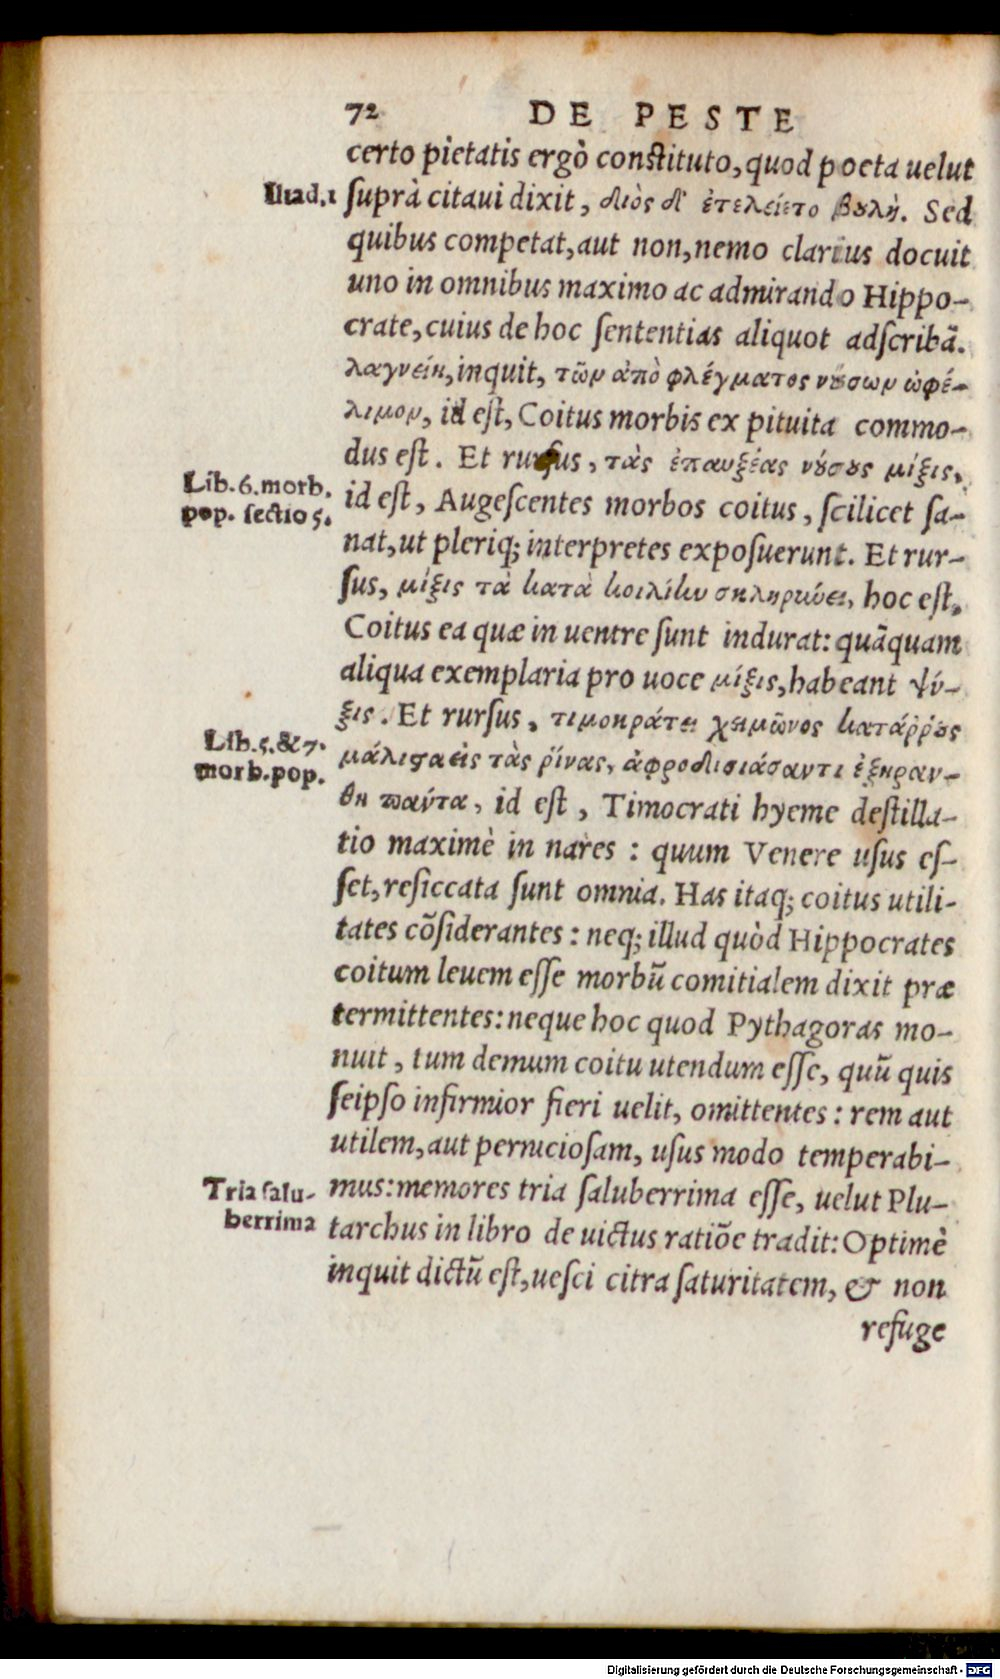 72 DE PESTE
certo pietatis ergò constituto, quod poeta uelut
Iliad.1
suprà citaui dixit, διὸς δ' ἐτελείετο βουλὴ. Sed
quibus competat, aut non, nemo clarius docuit
uno in omnibus maximo ac admirando Hippo-
crate, cuius de hoc sententias aliquot adscribã.
λαγνείη, inquit, τῶν ἀπὸ φλέγματος νούσων ὠφέ-
λιμον, id est, Coitus morbis ex pituita commo-
dus est. Et rursus, τὰς ἐπαυξέας νούσους μίξις,
Lib.6.morb.
pop. sectio 5.
id est, Augescentes morbos coitus, scilicet sa-
nat, ut pleriq; interpretes exposuerunt. Et rur-
sus, μίξις τὰ κατὰ κοιλίην σκληρύνει, hoc est,
Coitus ea quæ in uentre sunt indurat: quãquam
aliqua exemplaria pro uoce μίξις, habeant ψύ-
ξις. Et rursus, τιμοκράτει χειμῶνος κατάῤῥους
Lib.5.&7.
morb.pop.
μάλιστα εἰς τὰς ῥίνας, ἀφροδισιάσαντι ἐξηράν-
θη παύτα, id est, Timocrati hyeme destilla-
tio maximè in nares: quum Venere usus es-
set, resiccata sunt omnia. Has itaq; coitus utili-
tates cõsiderantes: neq; illud quòd Hippocrates
coitum leuem esse morbũ comitialem dixit præ
termittentes: neque hoc quod Pythagoras mo-
nuit, tum demum coitu utendum esse, quũ quis
seipso infirmior fieri uelit, omittentes: rem aut
utilem, aut perniciosam, usus modo temperabi-
Tria salu-
berrima
mus: memores tria saluberrima esse, uelut Plu-
tarchus in libro de uictus ratiõe tradit: Optimè
inquit dictũ est, uesci citra saturitatem, & non
refuge
Digitalisierung gefördert durch die Deutsche Forschungsgemeinschaft - DFG